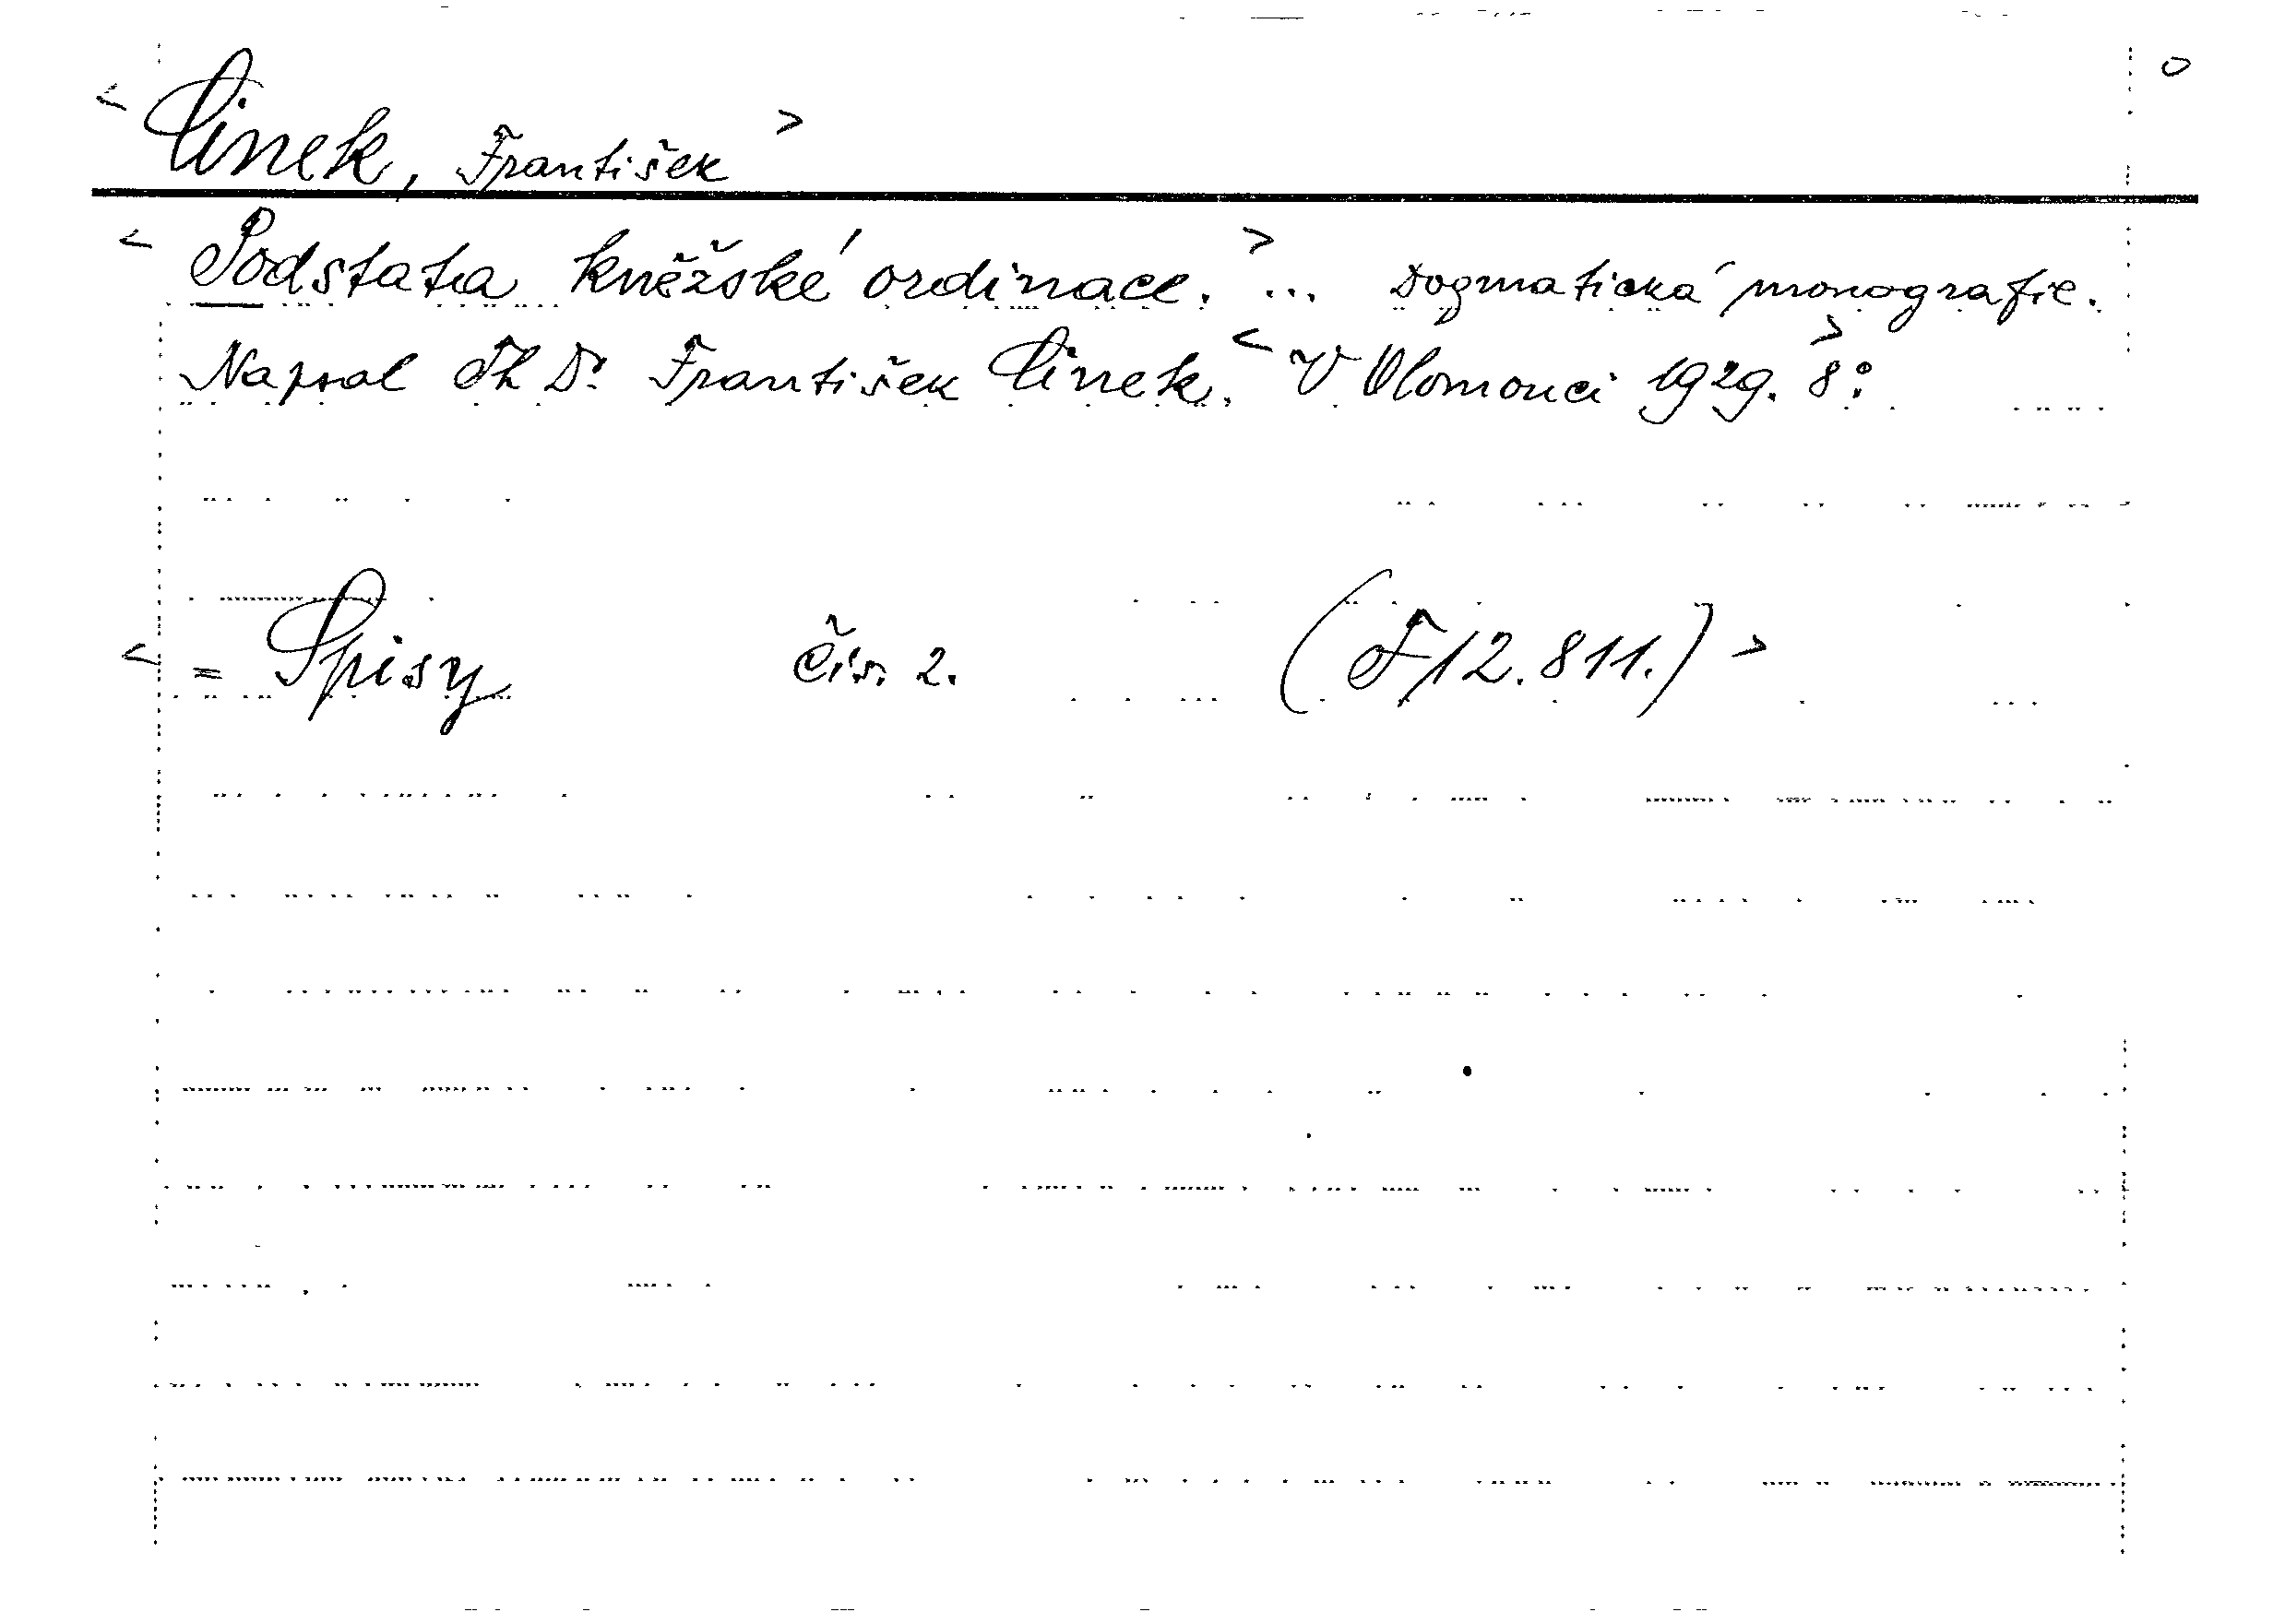 < Cinek, František >
< Podstata kněžské ordinace. > ... Dogmatická monografie.
Napsal Th Dr. František Cinek. < V Olomouci 1929. > 8°.
< = Spisy čís. 2. (F 12.811.) >